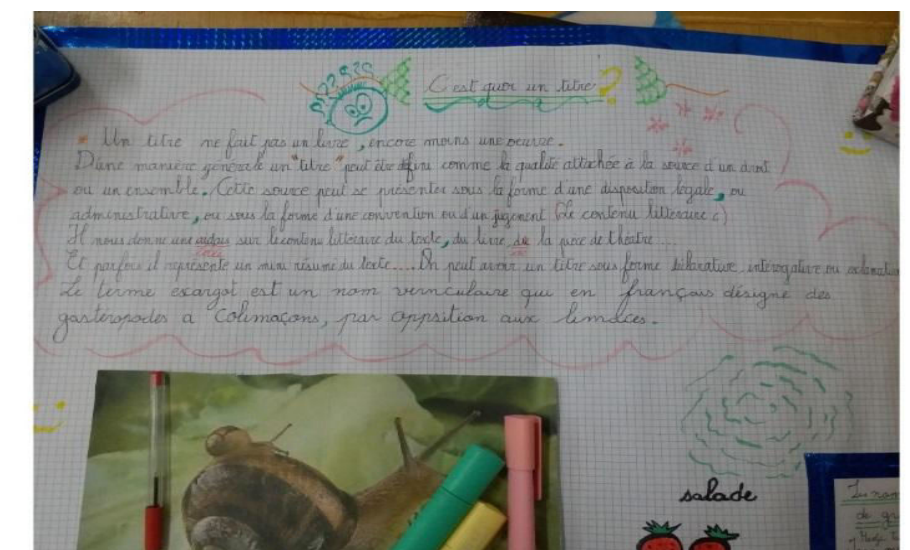 C'est quoi un titre ?
Un titre ne fait pas un livre, encore moins une oeuvre.
D'une manière générale un "titre" peut être comme la qualité attachée à la source d'un droit
ou un ensemble. Cette source peut se présenter sous la forme d'une disposition légale, ou
administrative, ou sous la forme d'une convention ou d'un jugement (Le contenu littéraire :)
Il nous donne une sur le contenu littéraire du texte, du livre, de la pièce de théatre...
Et parfois il représente un mini résumé du texte.... On peut avoir un titre sous forme interogative ou
Le terme escargot est un nom vernculaire qui en français désigne des
gastéropodes a Colimaçons, par oppsition aux limaces.
salade
Les
de